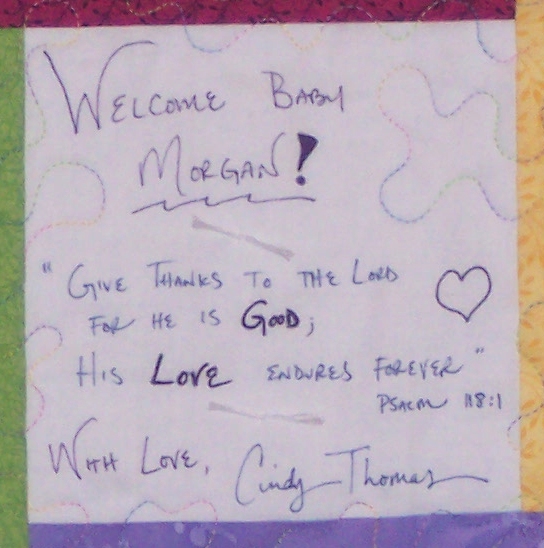 Welcome Baby
Morgan!
"Give Thanks to the Lord
for He is Good;
His Love endures forever"
Psalm 118:1
With Love, Cindy Thomas